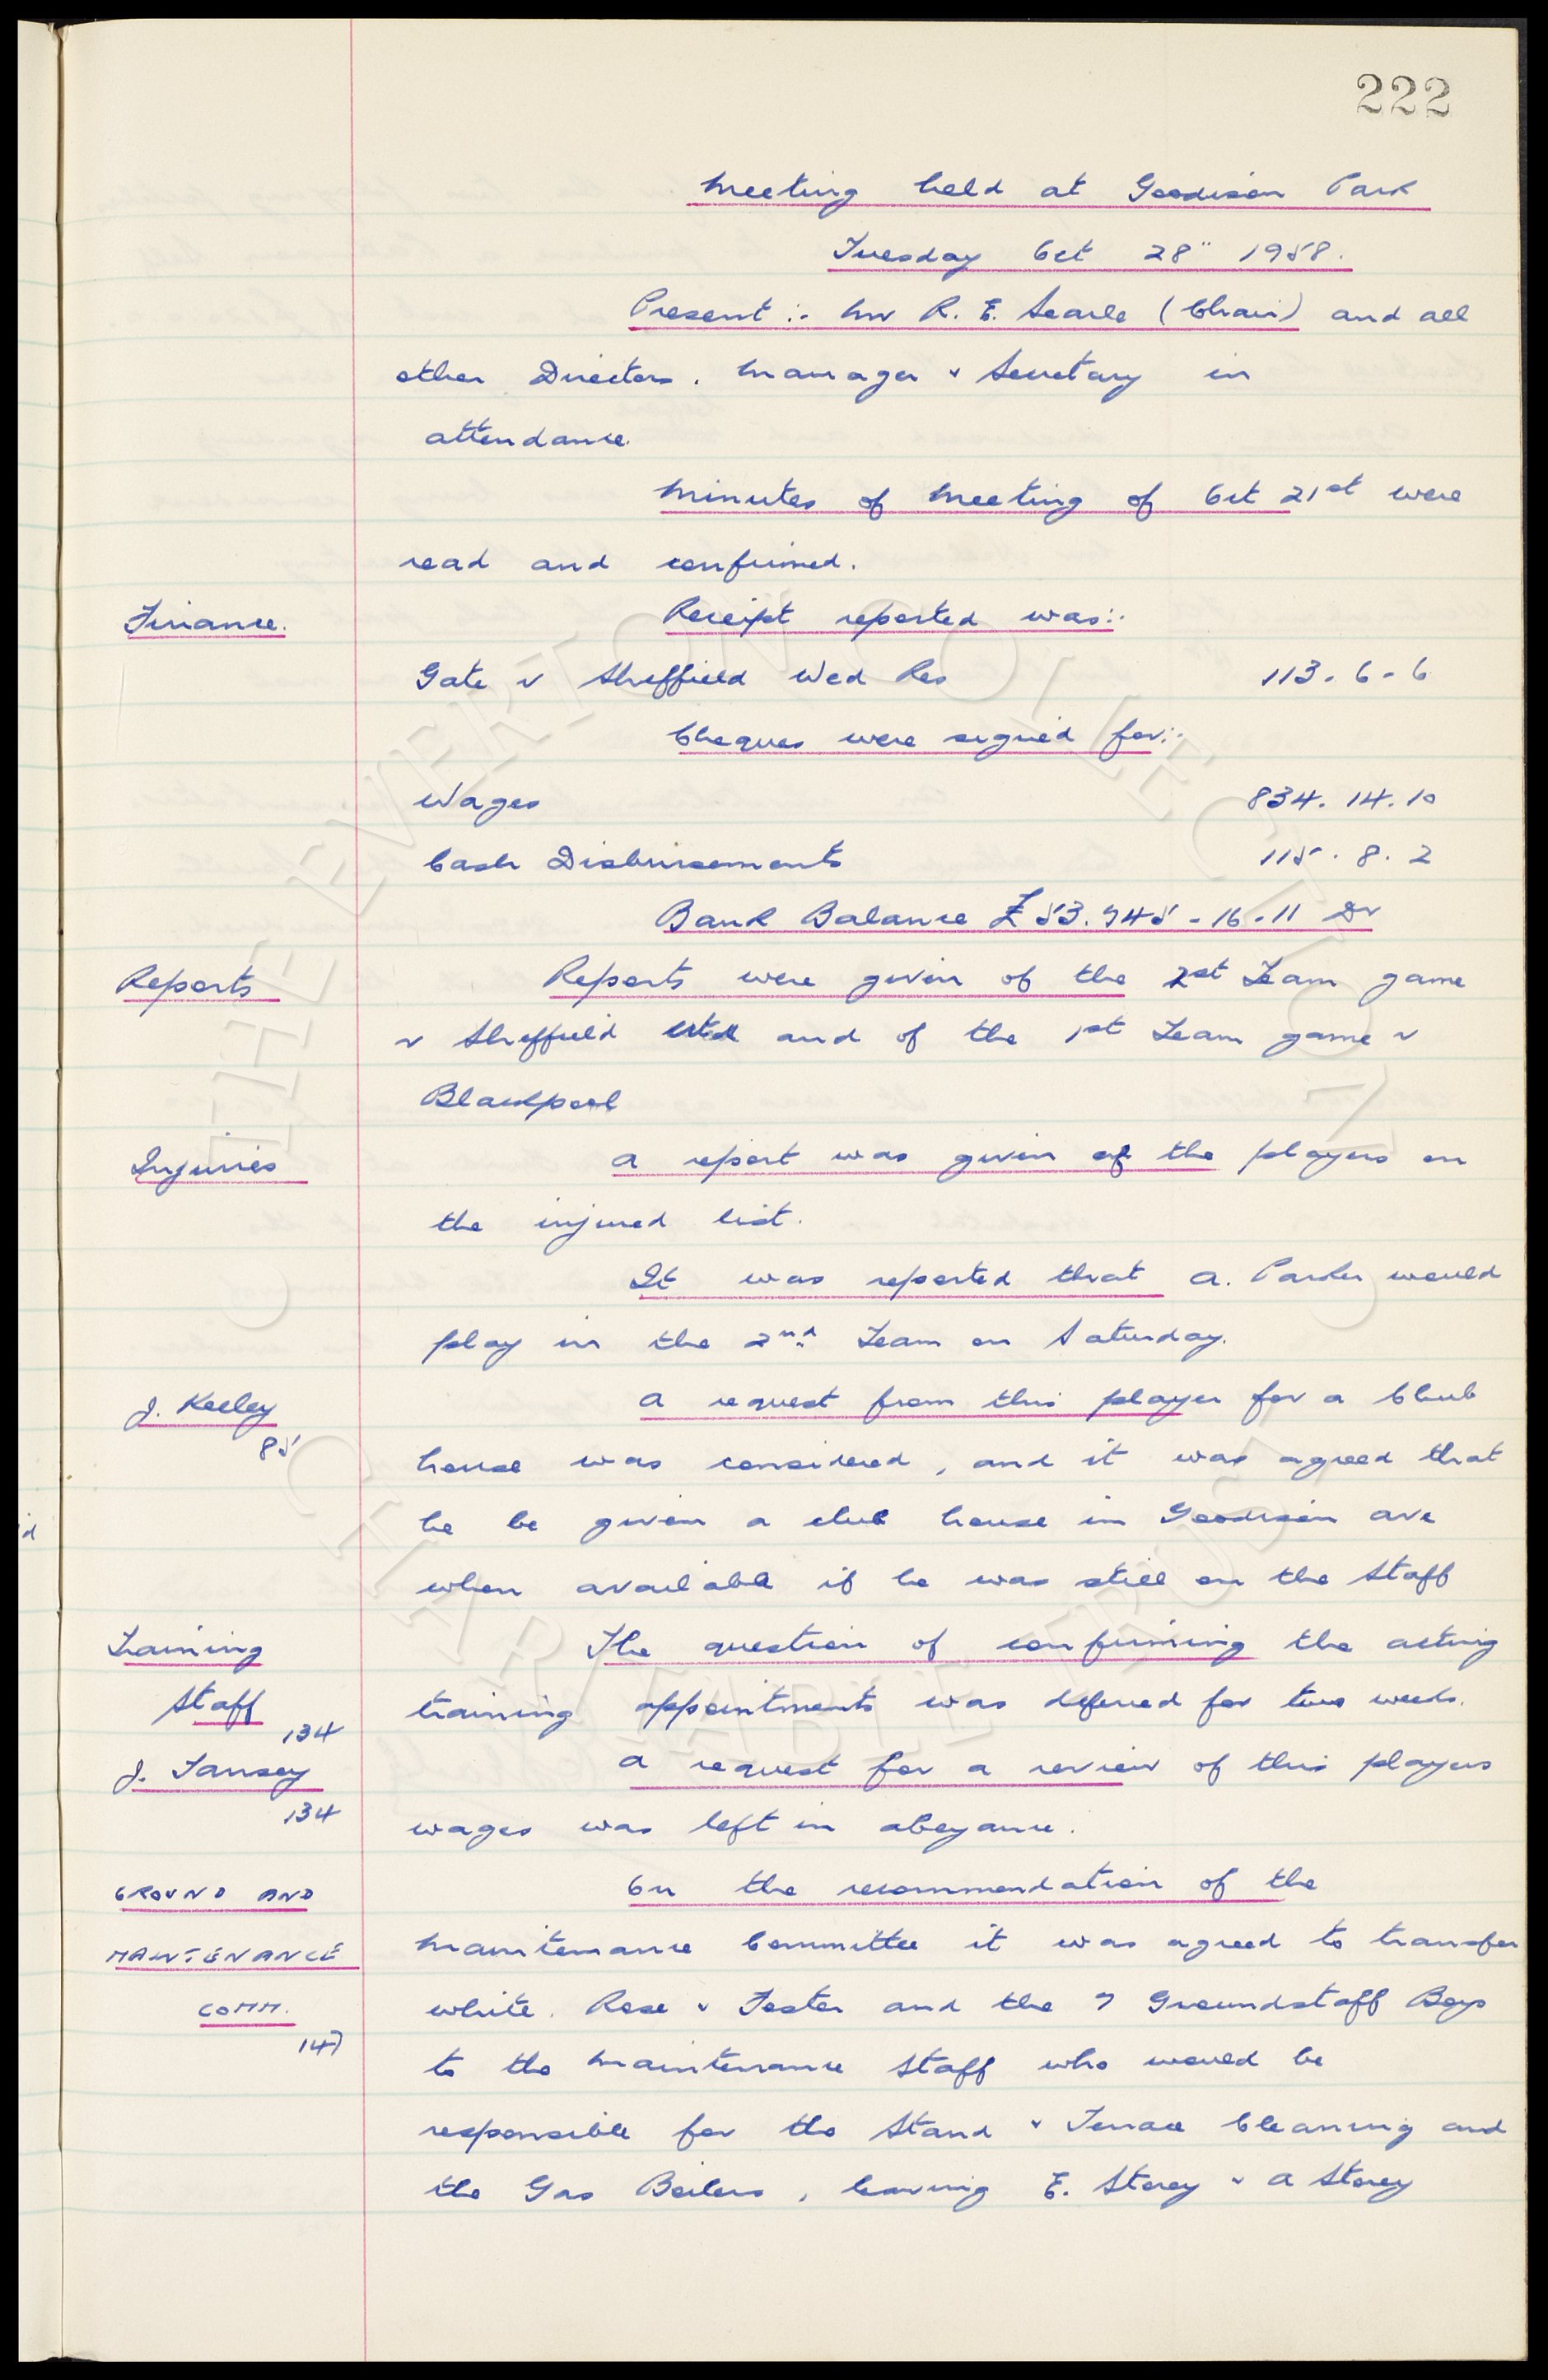 222
Meeting held at Goodison Park
Tuesday Oct 28" 1958.
Present :- Mr R. E. Searle (Chair) and all
other Directors. Manager & Secretary in
attendance.
Minutes of Meeting of Oct 21st were
read and confirmed.
Finance. Receipt reported was:-
Gate v Sheffield Wed Res 113. 6. 6
Cheques were signed for:-
Wages 834. 14. 10
Cash Disbursements 115. 8. 2
Bank Balance £53.745 - 16 - 11 Dr
Reports Reports were given of the 2st Team game
v Sheffield Wed and of the 1st Team game v
Blackpool
Injuries A report was given of the players on
the injured list.
It was reported that A. Parker would
play in the 2nd Team on Saturday.
J. Keeley A request from this player for a Club
85 house was considered, and it was agreed that
he be given a club house in Goodison Ave
when available if he was still on the Staff
Training The question of confirming the acting
Staff 134 training appointments was deferred for two weeks.
J. Tansey A request for a review of this players
134 wages was left in abeyance.
GROUND AND On the recommendation of the
MAINTENANCE Maintenance Committee it was agreed to transfer
COMM. White. Rose & Tester and the 7 Groundstaff Boys
147 to the Maintenance Staff who would be
responsible for the Stand & Terrace Cleaning and
the Gas Boilers, leaving E. Storey & A Storey
THE EVERTON COLLECTION
CHARITABLE TRUST